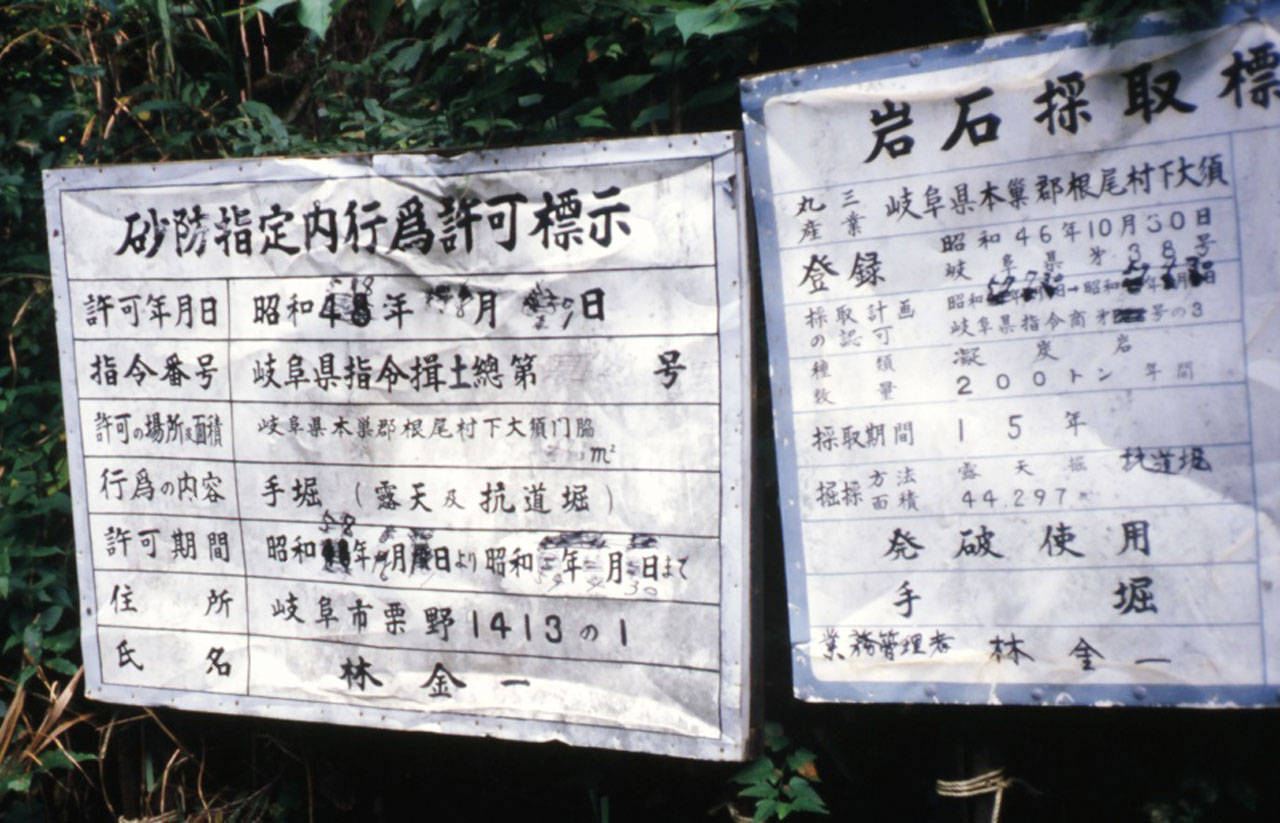 砂防指定内行為許可標示
許可年月日 昭和 年 月 日
指令番号 岐阜県指令揖土總第 号
許可の場所及面積 岐阜県本巣郡根尾村下大須門脇
m²
行為の内容 手堀 (露天及抗道堀)
許可期間 昭和 年 月 日より昭和 年 月 日まで
住所 岐阜市栗野1413の1
氏名 林金一
岩石採取標
丸三産業 岐阜県本巣郡根尾村下大須
登録 昭和46年10月30日
岐阜県第38号
採取計画の認可 昭和 年 月 日→昭和 年 月 日
岐阜県指令商第 号の3
種類 凝炭岩
数量 200トン 年間
採取期間 15年
掘採方法 露天掘 抗道堀
面積 44.297
発破使用
手堀
業務管理者 林金一